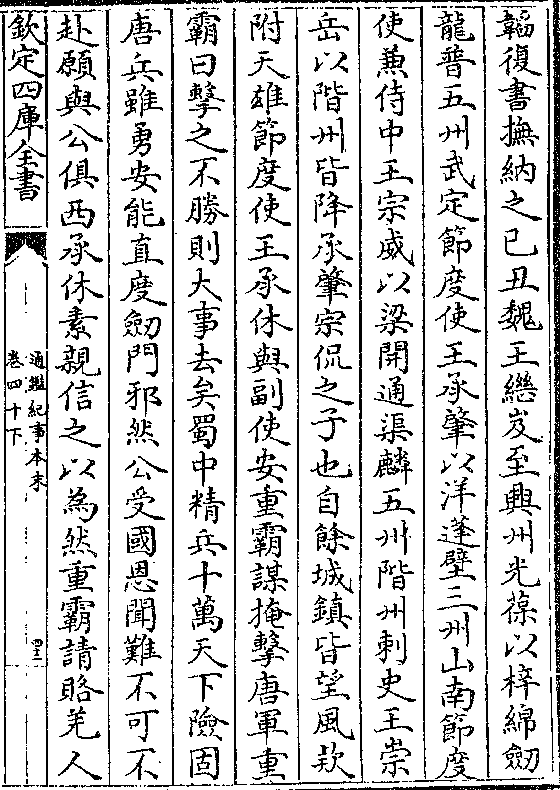 韜復書撫納之已丑魏王繼岌至興州光葆以梓綿劔
龍普五州武定節度使王承肇以洋蓬壁三州山南節度
使兼侍中王宗威以梁開通渠麟五州階州刺史王崇
岳以階州皆降承肇宗侃之子也自餘城鎮皆望風欵
附天雄節度使王承休與副使安重霸謀掩擊唐軍重
霸曰擊之不勝則大事去矣蜀中精兵十萬天下險固
唐兵雖勇安能直度劔門邪然公受國恩聞難不可不
赴願與公俱西承休素親信之以為然重霸請賂羌人
欽定四庫全書
通鑑紀事本末
卷四十下